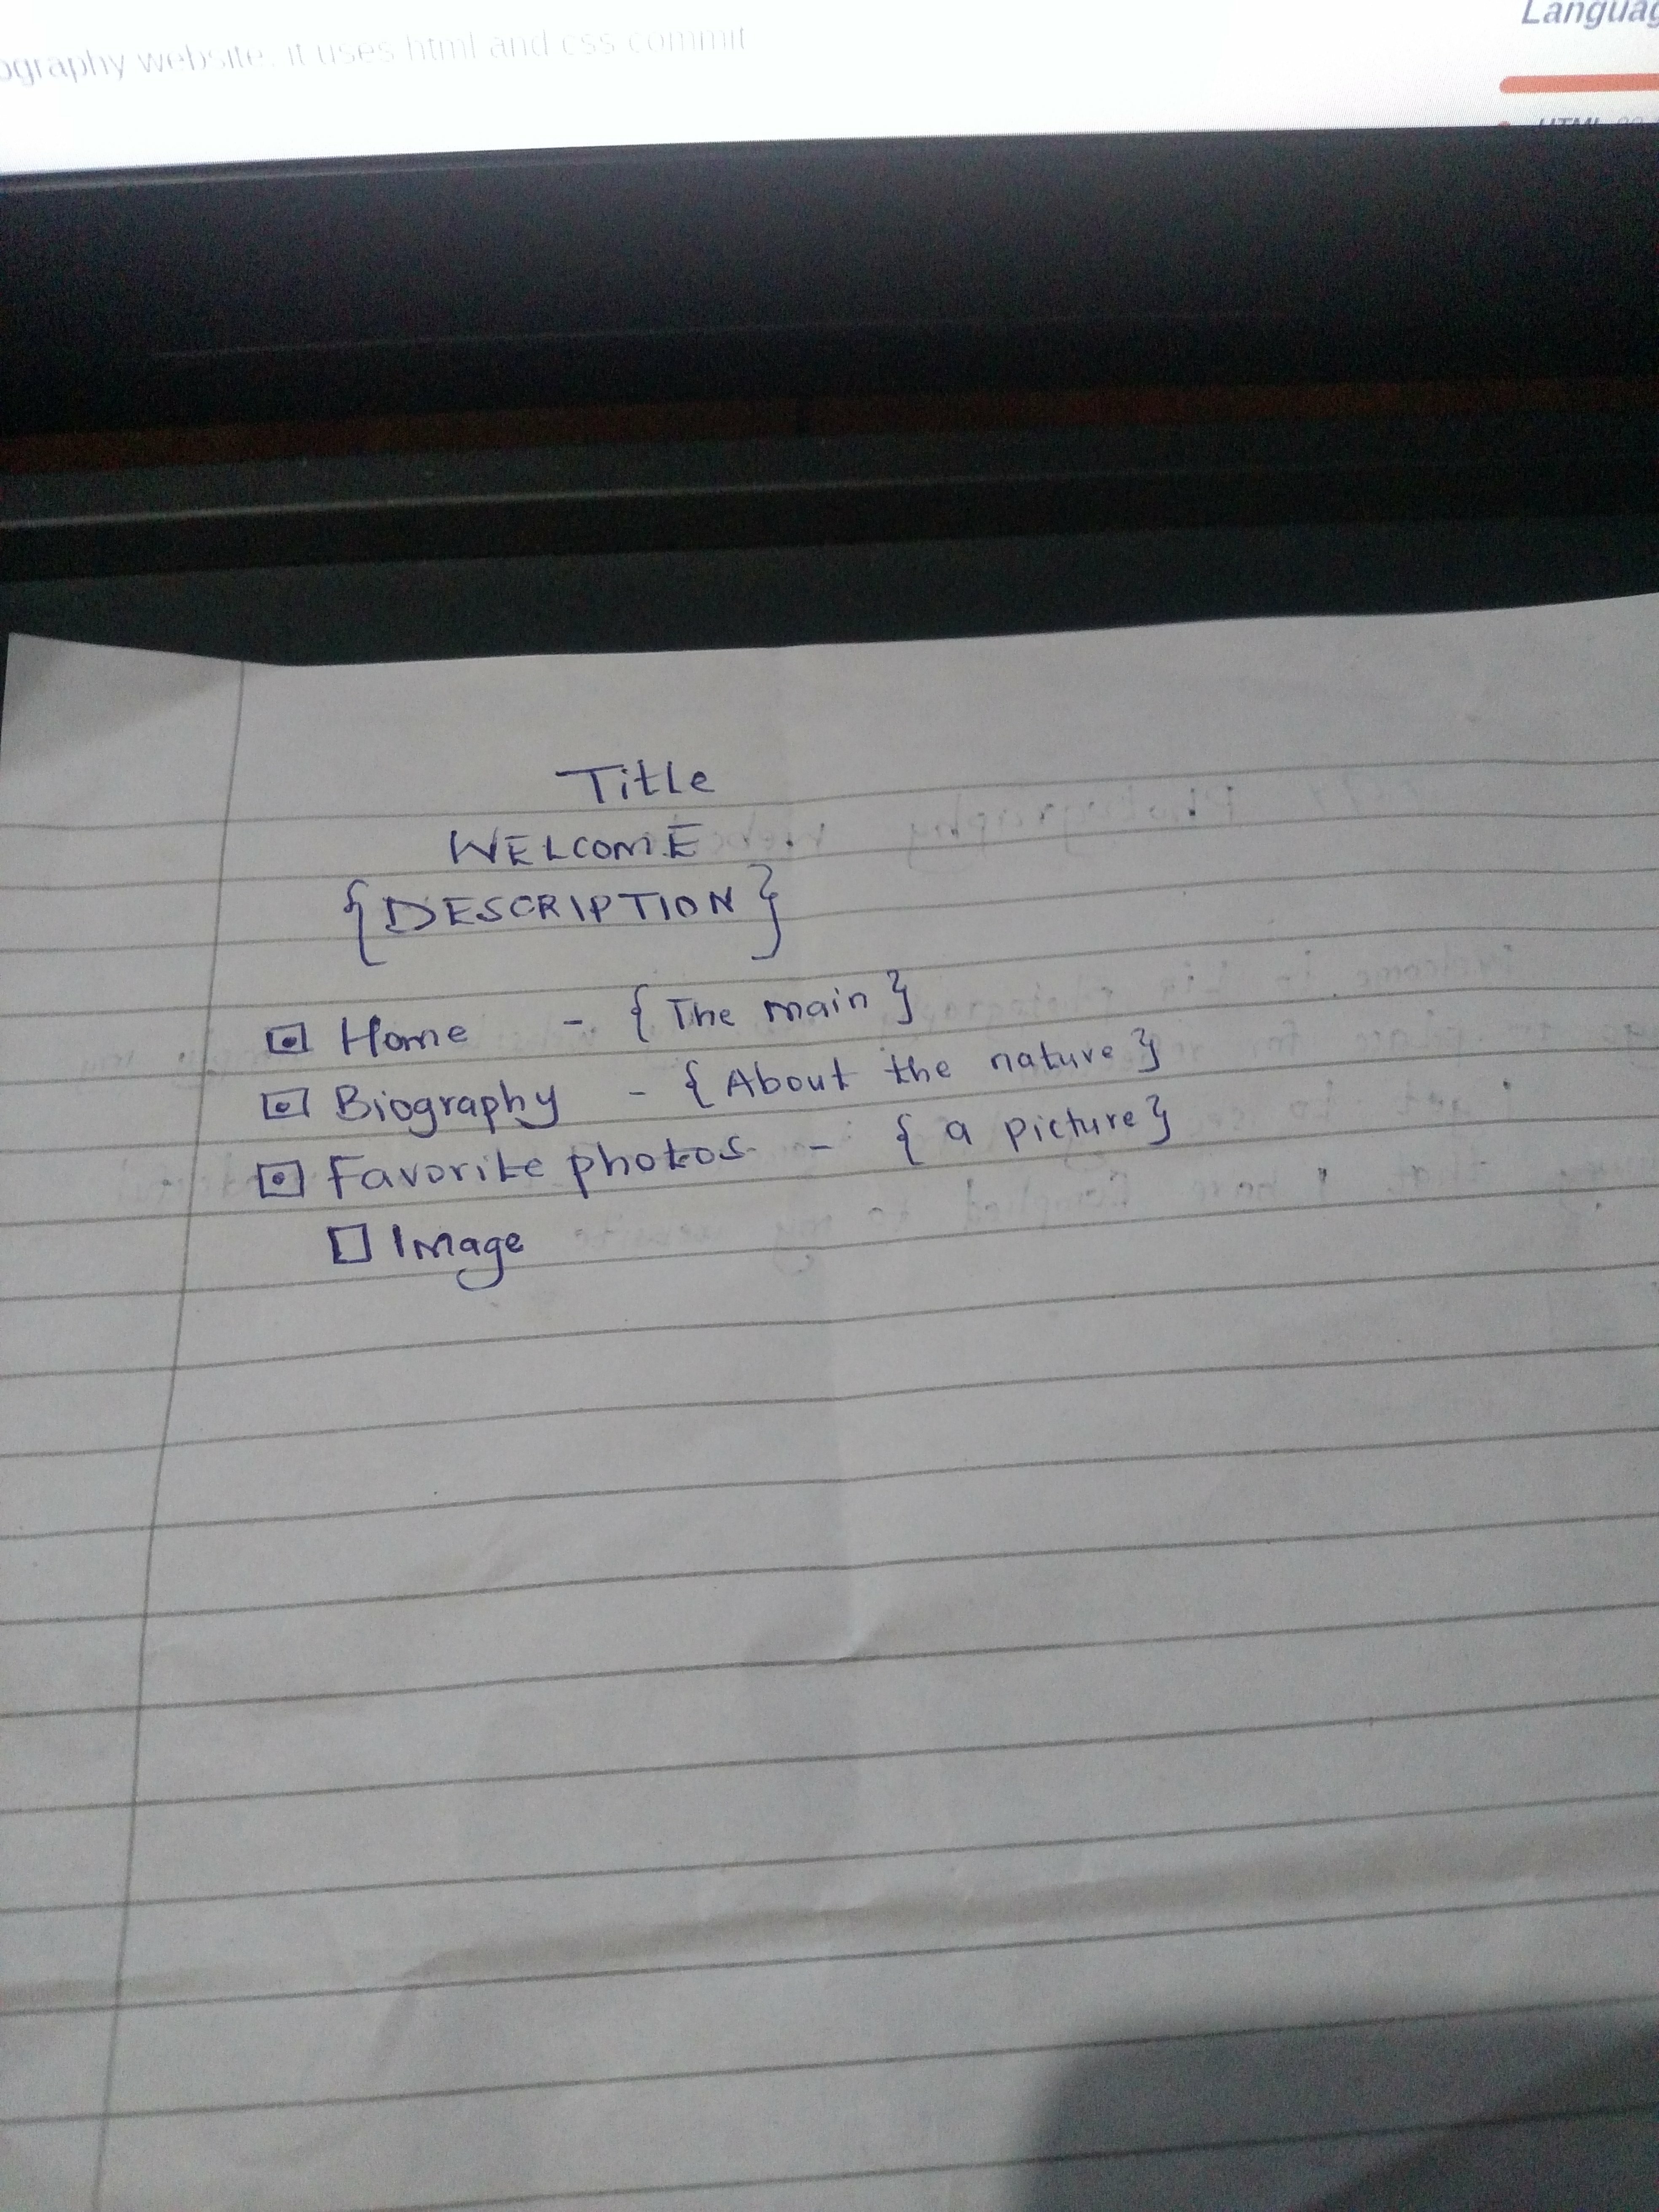 Languag
ography website. it uses html and css commit
HTML
Title
WELCOME
{DESCRIPTION}
Home - {The main}
Biography - {About the nature}
Favorite photos - {a picture}
Image